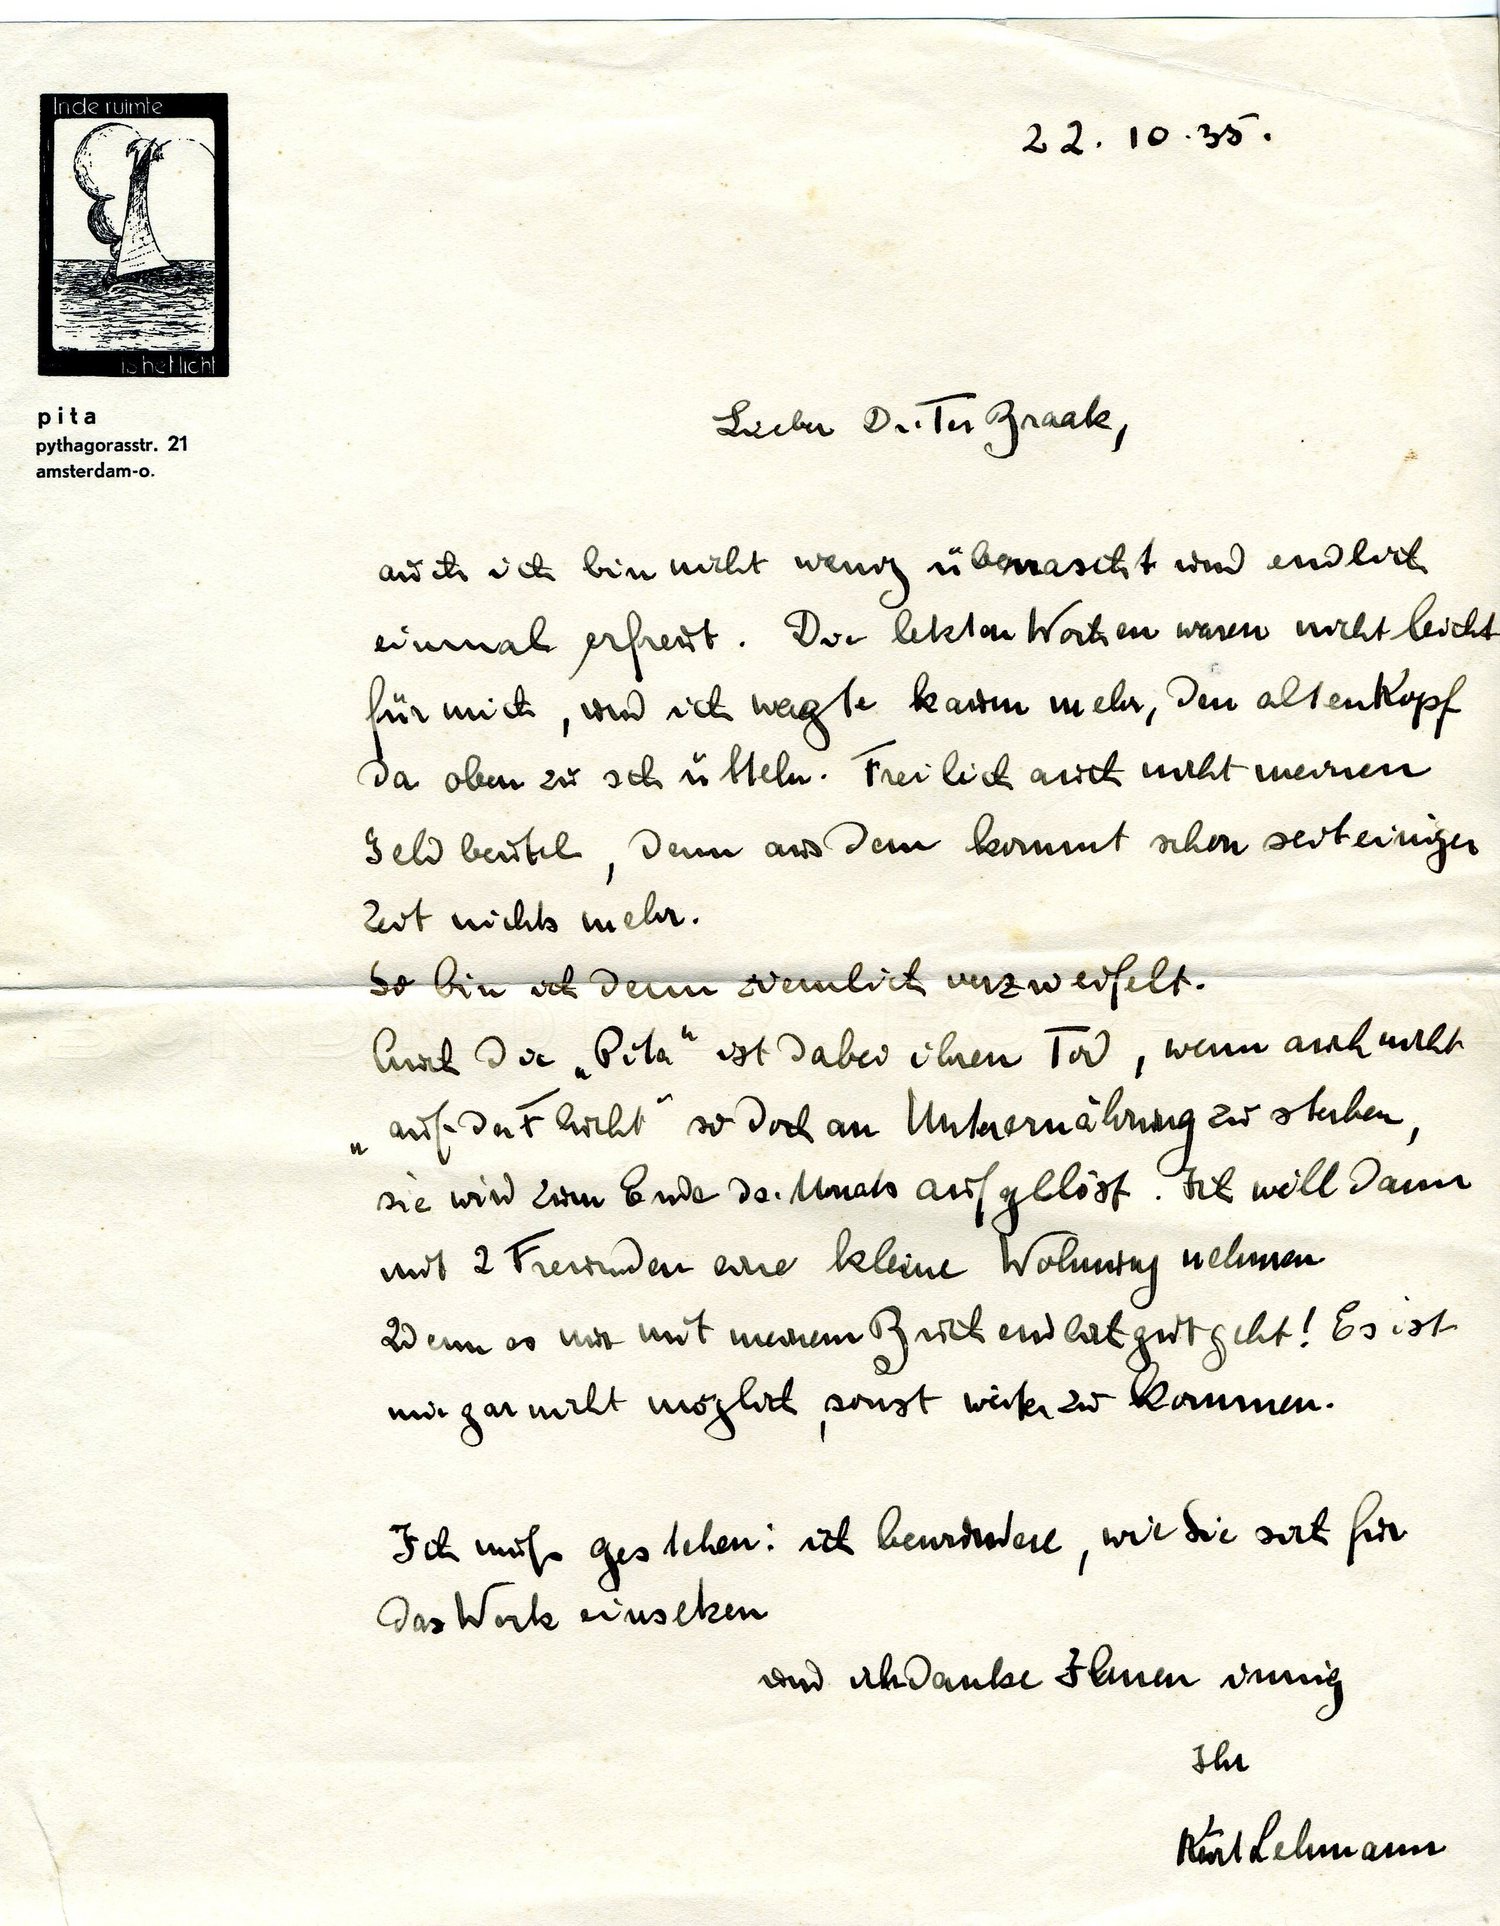 In de ruimte
is het licht
pita
pythagorasstr. 21
amsterdam-o.
22. 10. 35.
Lieber Dr. Ter Braak,
auch ich bin nicht wenig überrascht und endlich
einmal erfreut. Die letzten Wochen waren nicht leicht
für mich, und ich wagte kaum mehr, den alten Kopf
da oben zu schütteln. Freilich auch nicht meinen
Geldbeutel, denn aus dem kommt schon seit einiger
Zeit nichts mehr.
So bin ich denn ziemlich verzweifelt.
Auch die „Pita“ ist dabei ihren Tod, wenn auch nicht
„auf der Flucht“ so doch an Unterernährung zu sterben,
sie wird zum Ende ds. Monats aufgelöst. Ich will dann
mit 2 Freunden eine kleine Wohnung nehmen
Wenn es nur mit meinem Buch endlich gut geht! Es ist
mir gar nicht möglich, sonst weiter zu kommen.
Ich muß gestehen: ich bewundere, wie Sie sich für
das Werk einsetzen
und ich danke Ihnen innig
Ihr
Kurt Lehmann